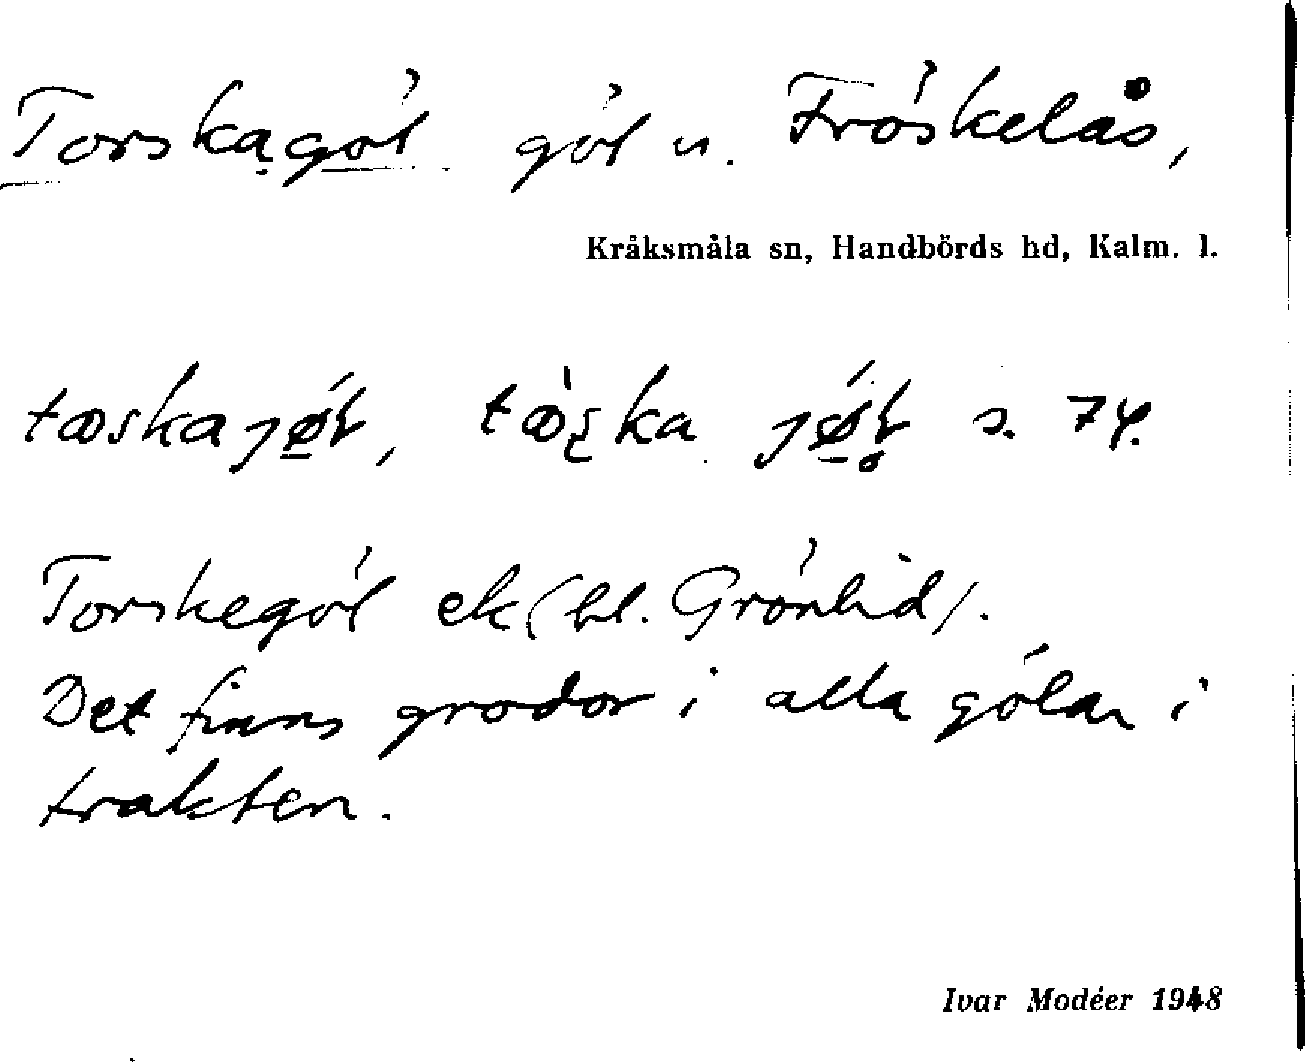 Torskagöl göl u. Fröskelås,
Kråksmåla sn, Handbörds hd, Kalm. l.
s. 74.
Torskegöl ek (bl. Grönlid).
Det finns grodor i alla gölar i
trakten.
Ivar Modéer 1948